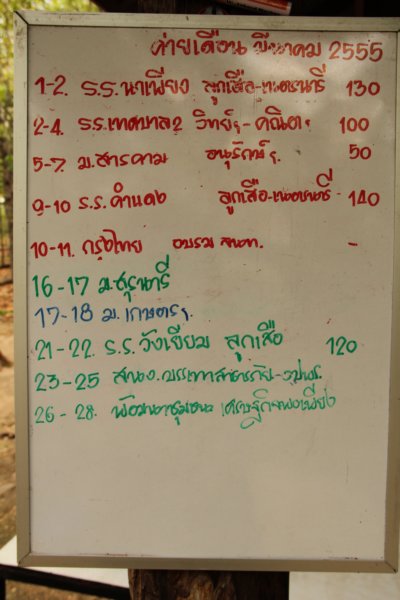 ค่ายเดือน มีนาคม 2555
1-2 ร.ร.นาเพียง ลูกเสือ-เนตรนารี 130
2-4 ร.ร.เทศบาล2 วิทย์ฯ-คณิตฯ 100
5-7 ม.สารคาม อนุรักษ์ฯ 50
9-10 ร.ร.คำแดง ลูกเสือ-เนตรนารี 140
10-11 กรุงไทย อบรม -
16-17 ม.
17-18 ม.เกษตรฯ
21-22 ร.ร.วังเยี่ยม ลูกเสือ 120
23-25 สนง.บรรเทาสาธารภัย-
26-28 พัฒนาชุมชน เศรษฐกิจพอเพียง